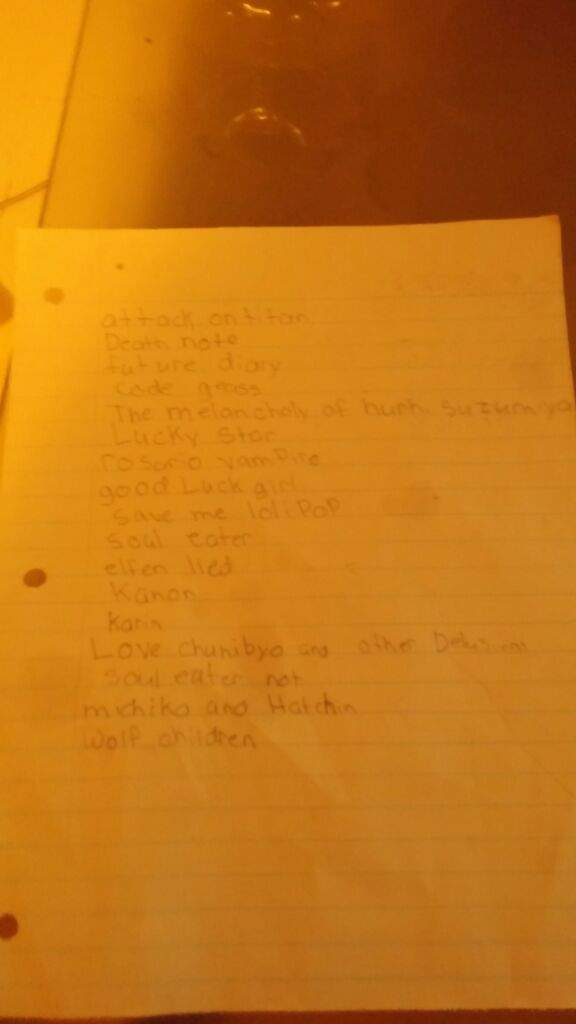 attack on titan
Death note
future diary
code geass
The melancholy of suzumiya
Lucky Star
rosario vampire
good Luck girl
save me loliPoP
soul eater
elfen lied
Kanon
Karin
Love chunibyo and other
soul eater not
michiko and Hatchin
Wolf children